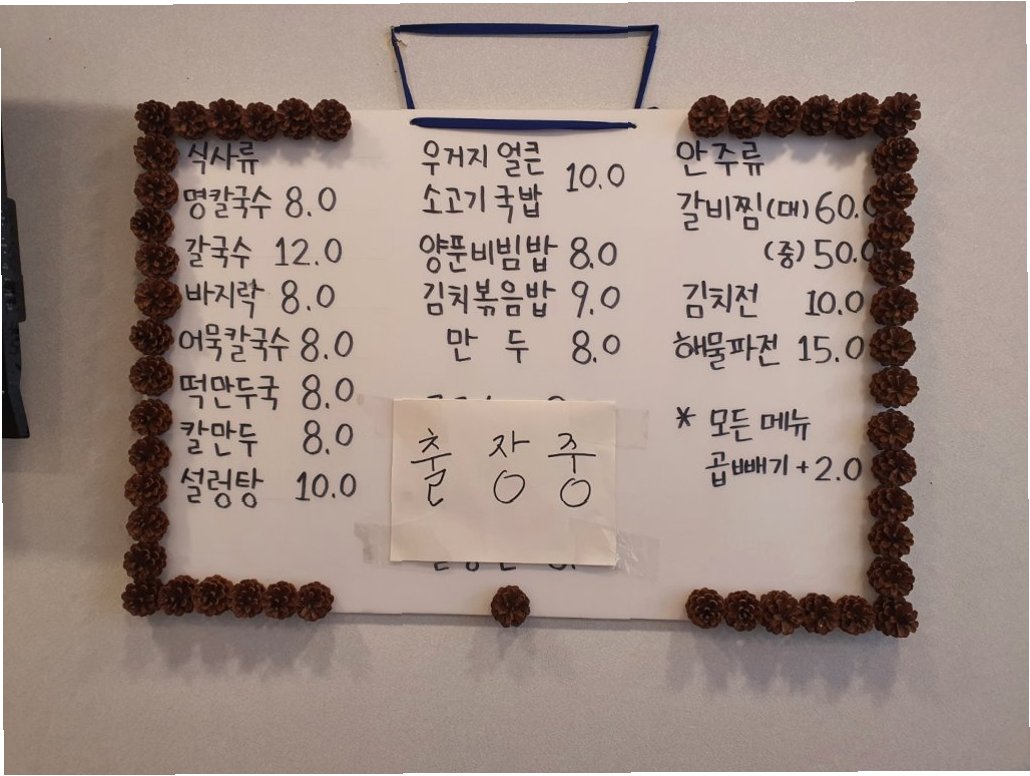 식사류
명칼국수 8.0
갈국수 12.0
바지락 8.0
어묵칼국수 8.0
떡만두국 8.0
칼만두 8.0
설렁탕 10.0
우거지 얼큰
소고기국밥 10.0
양푼비빔밥 8.0
김치볶음밥 9.0
만 두 8.0
출 장 중
안주류
갈비찜(대) 60.0
(중) 50.0
김치전 10.0
해물파전 15.0
* 모든 메뉴
곱빼기 + 2.0